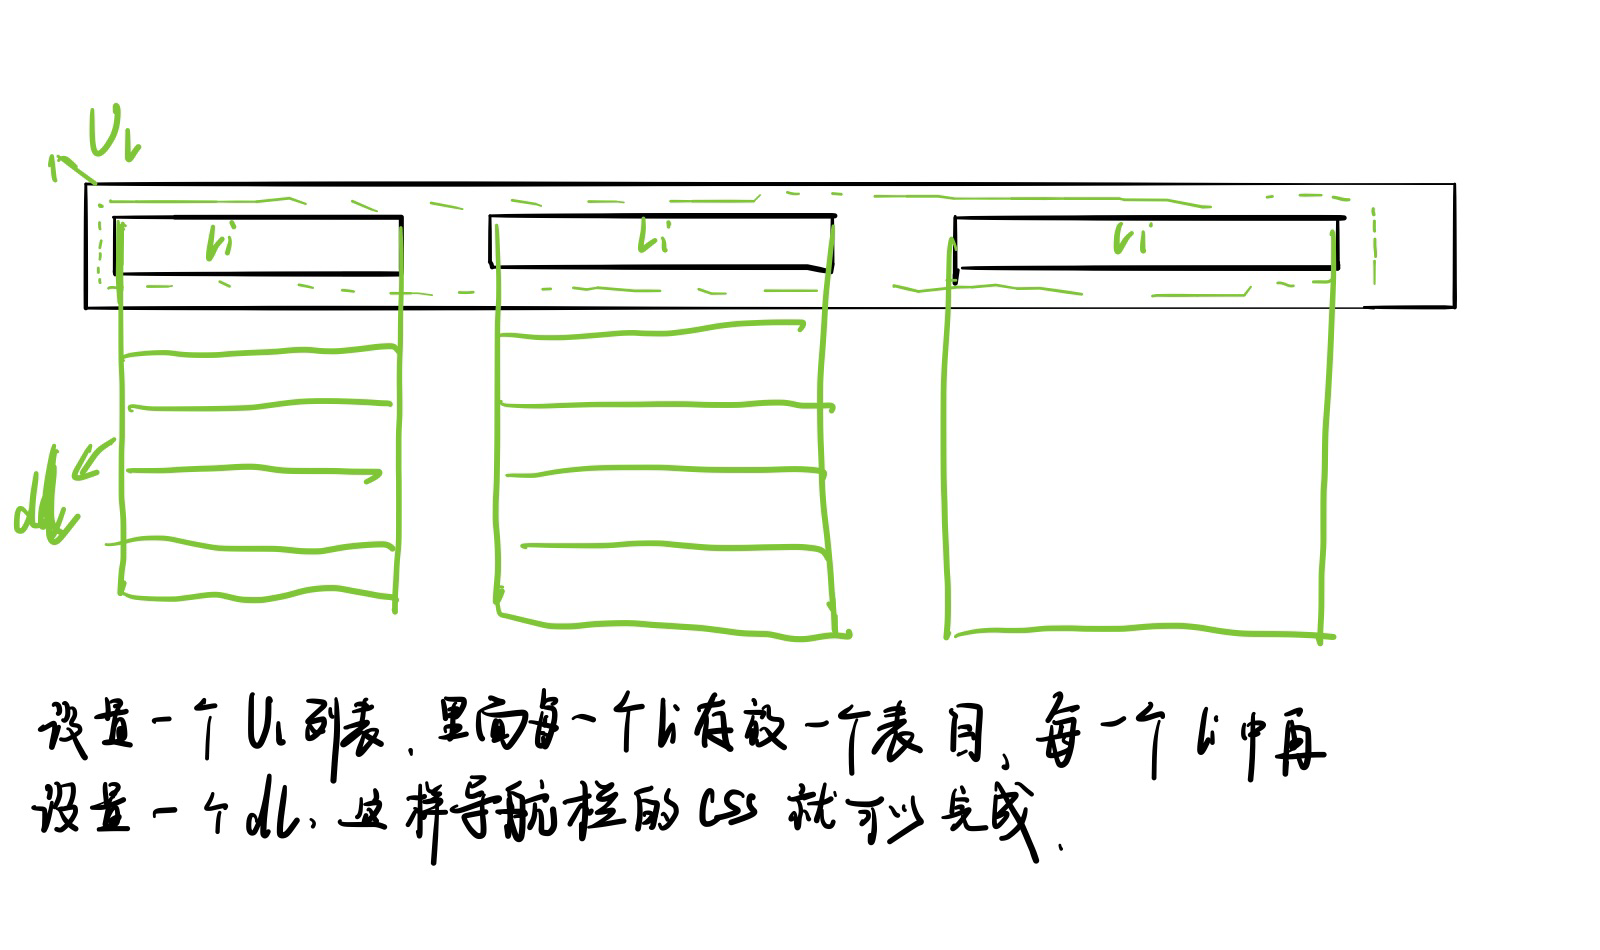 Ul
li
li
li
dl
设置一个Ul列表.里面每一个li存放一个表目,每一个li中再
设置一个dl,这样导航栏的css就可以完成.